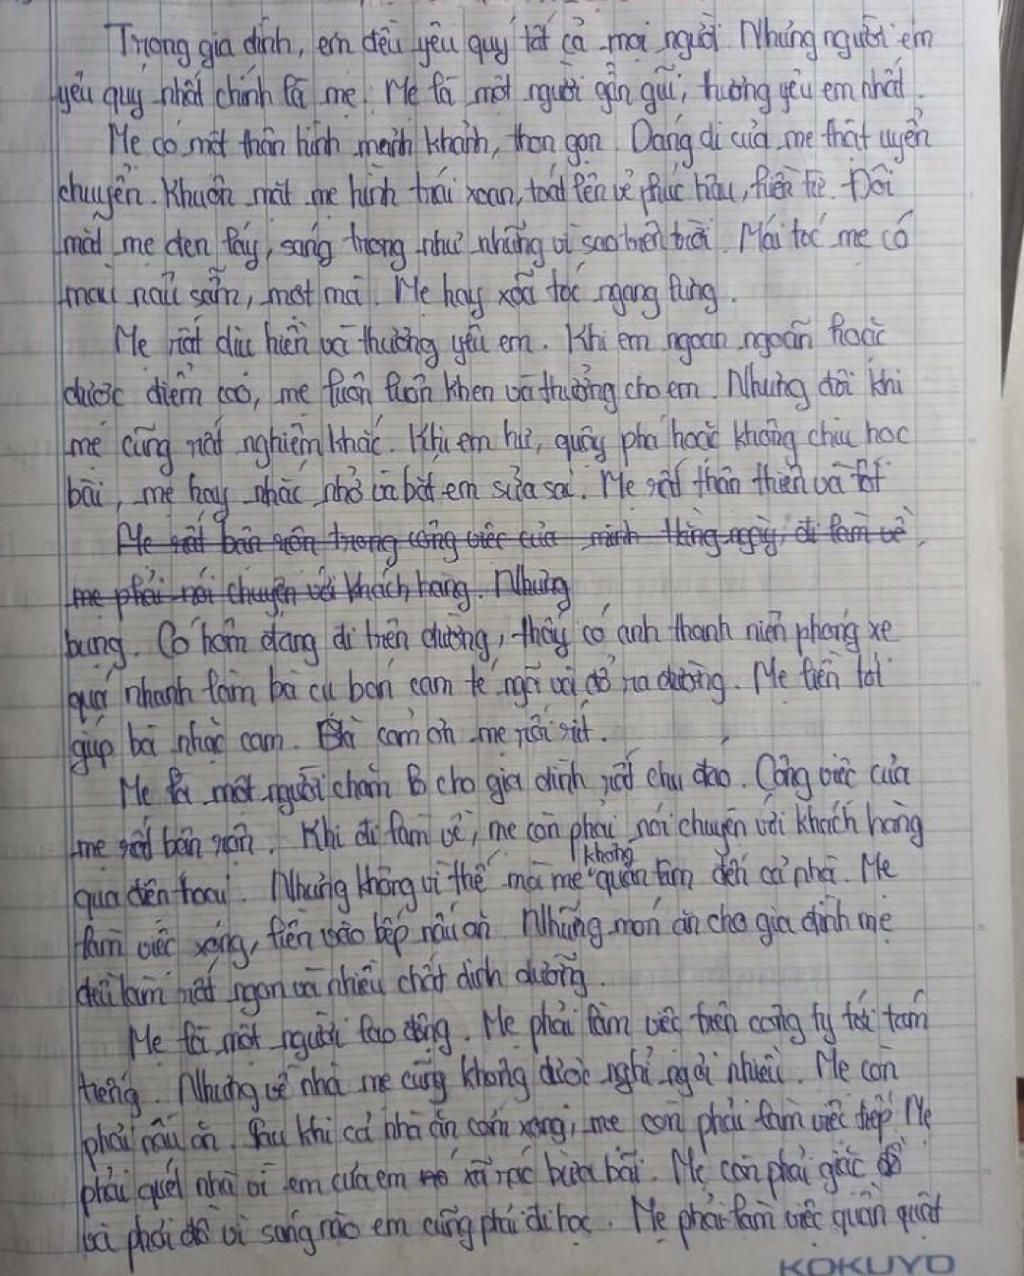 Trong gia đình, em đều yêu quý tất cả mọi người Nhưng người em
yêu quý nhất chính là mẹ. Mẹ là một người gần gũi, thương yêu em nhất.
Mẹ có một thân hình mảnh khảnh, thon gọn. Dáng đi của mẹ thật uyển
chuyển. Khuôn mặt mẹ hình trái xoan, toát lên vẻ phúc hậu, hiền từ. Đôi
mắt mẹ đen láy, sáng trong như những vì sao trên trời. Mái tóc mẹ có
màu nâu sẫm, mượt mà. Mẹ hay xoã tóc ngang lưng.
Mẹ rất dịu hiền và thương yêu em. Khi em ngoan ngoãn hoặc
được điểm cao, mẹ luôn luôn khen và thưởng cho em. Nhưng đôi khi
mẹ cũng rất nghiêm khắc. Khi em hư, quậy phá hoặc không chịu học
bài, mẹ hay nhắc nhở và bắt em sửa sai. Mẹ rất thân thiện và tốt
Mẹ rất bận rộn trong công việc của mình Hằng ngày, đi làm về,
mẹ phải nói chuyện với khách hàng. Nhưng
bụng. Có hôm đang đi trên đường, thấy có anh thanh niên phóng xe
quá nhanh làm bà cụ bán cam té ngã và đổ ra đường. Mẹ liền tới
giúp bà nhặt cam. Bà cảm ơn mẹ rối rít.
Mẹ là một người chăm lo cho gia đình rất chu đáo. Công việc của
mẹ rất bận rộn. Khi đi làm về, mẹ còn phải nói chuyện với khách hàng
qua điện thoại. Nhưng không vì thế mà mẹ không quan tâm đến cả nhà. Mẹ
làm việc xong, liền vào bếp nấu ăn. Những món ăn cho gia đình mẹ
đều làm rất ngon và nhiều chất dinh dưỡng.
Mẹ là một người lao động. Mẹ phải làm việc trên công ty tới tám
tiếng. Nhưng về nhà mẹ cũng không được nghỉ ngơi nhiều. Mẹ còn
phải nấu ăn. Sau khi cả nhà ăn cơm xong, mẹ còn phải làm việc tiếp. Mẹ
phải quét nhà vì em của em xã rác bừa bãi. Mẹ còn phải giặc đồ
và phơi đồ vì sáng nào em cũng phải đi học. Mẹ phải làm việc quần quật
KOKUYO